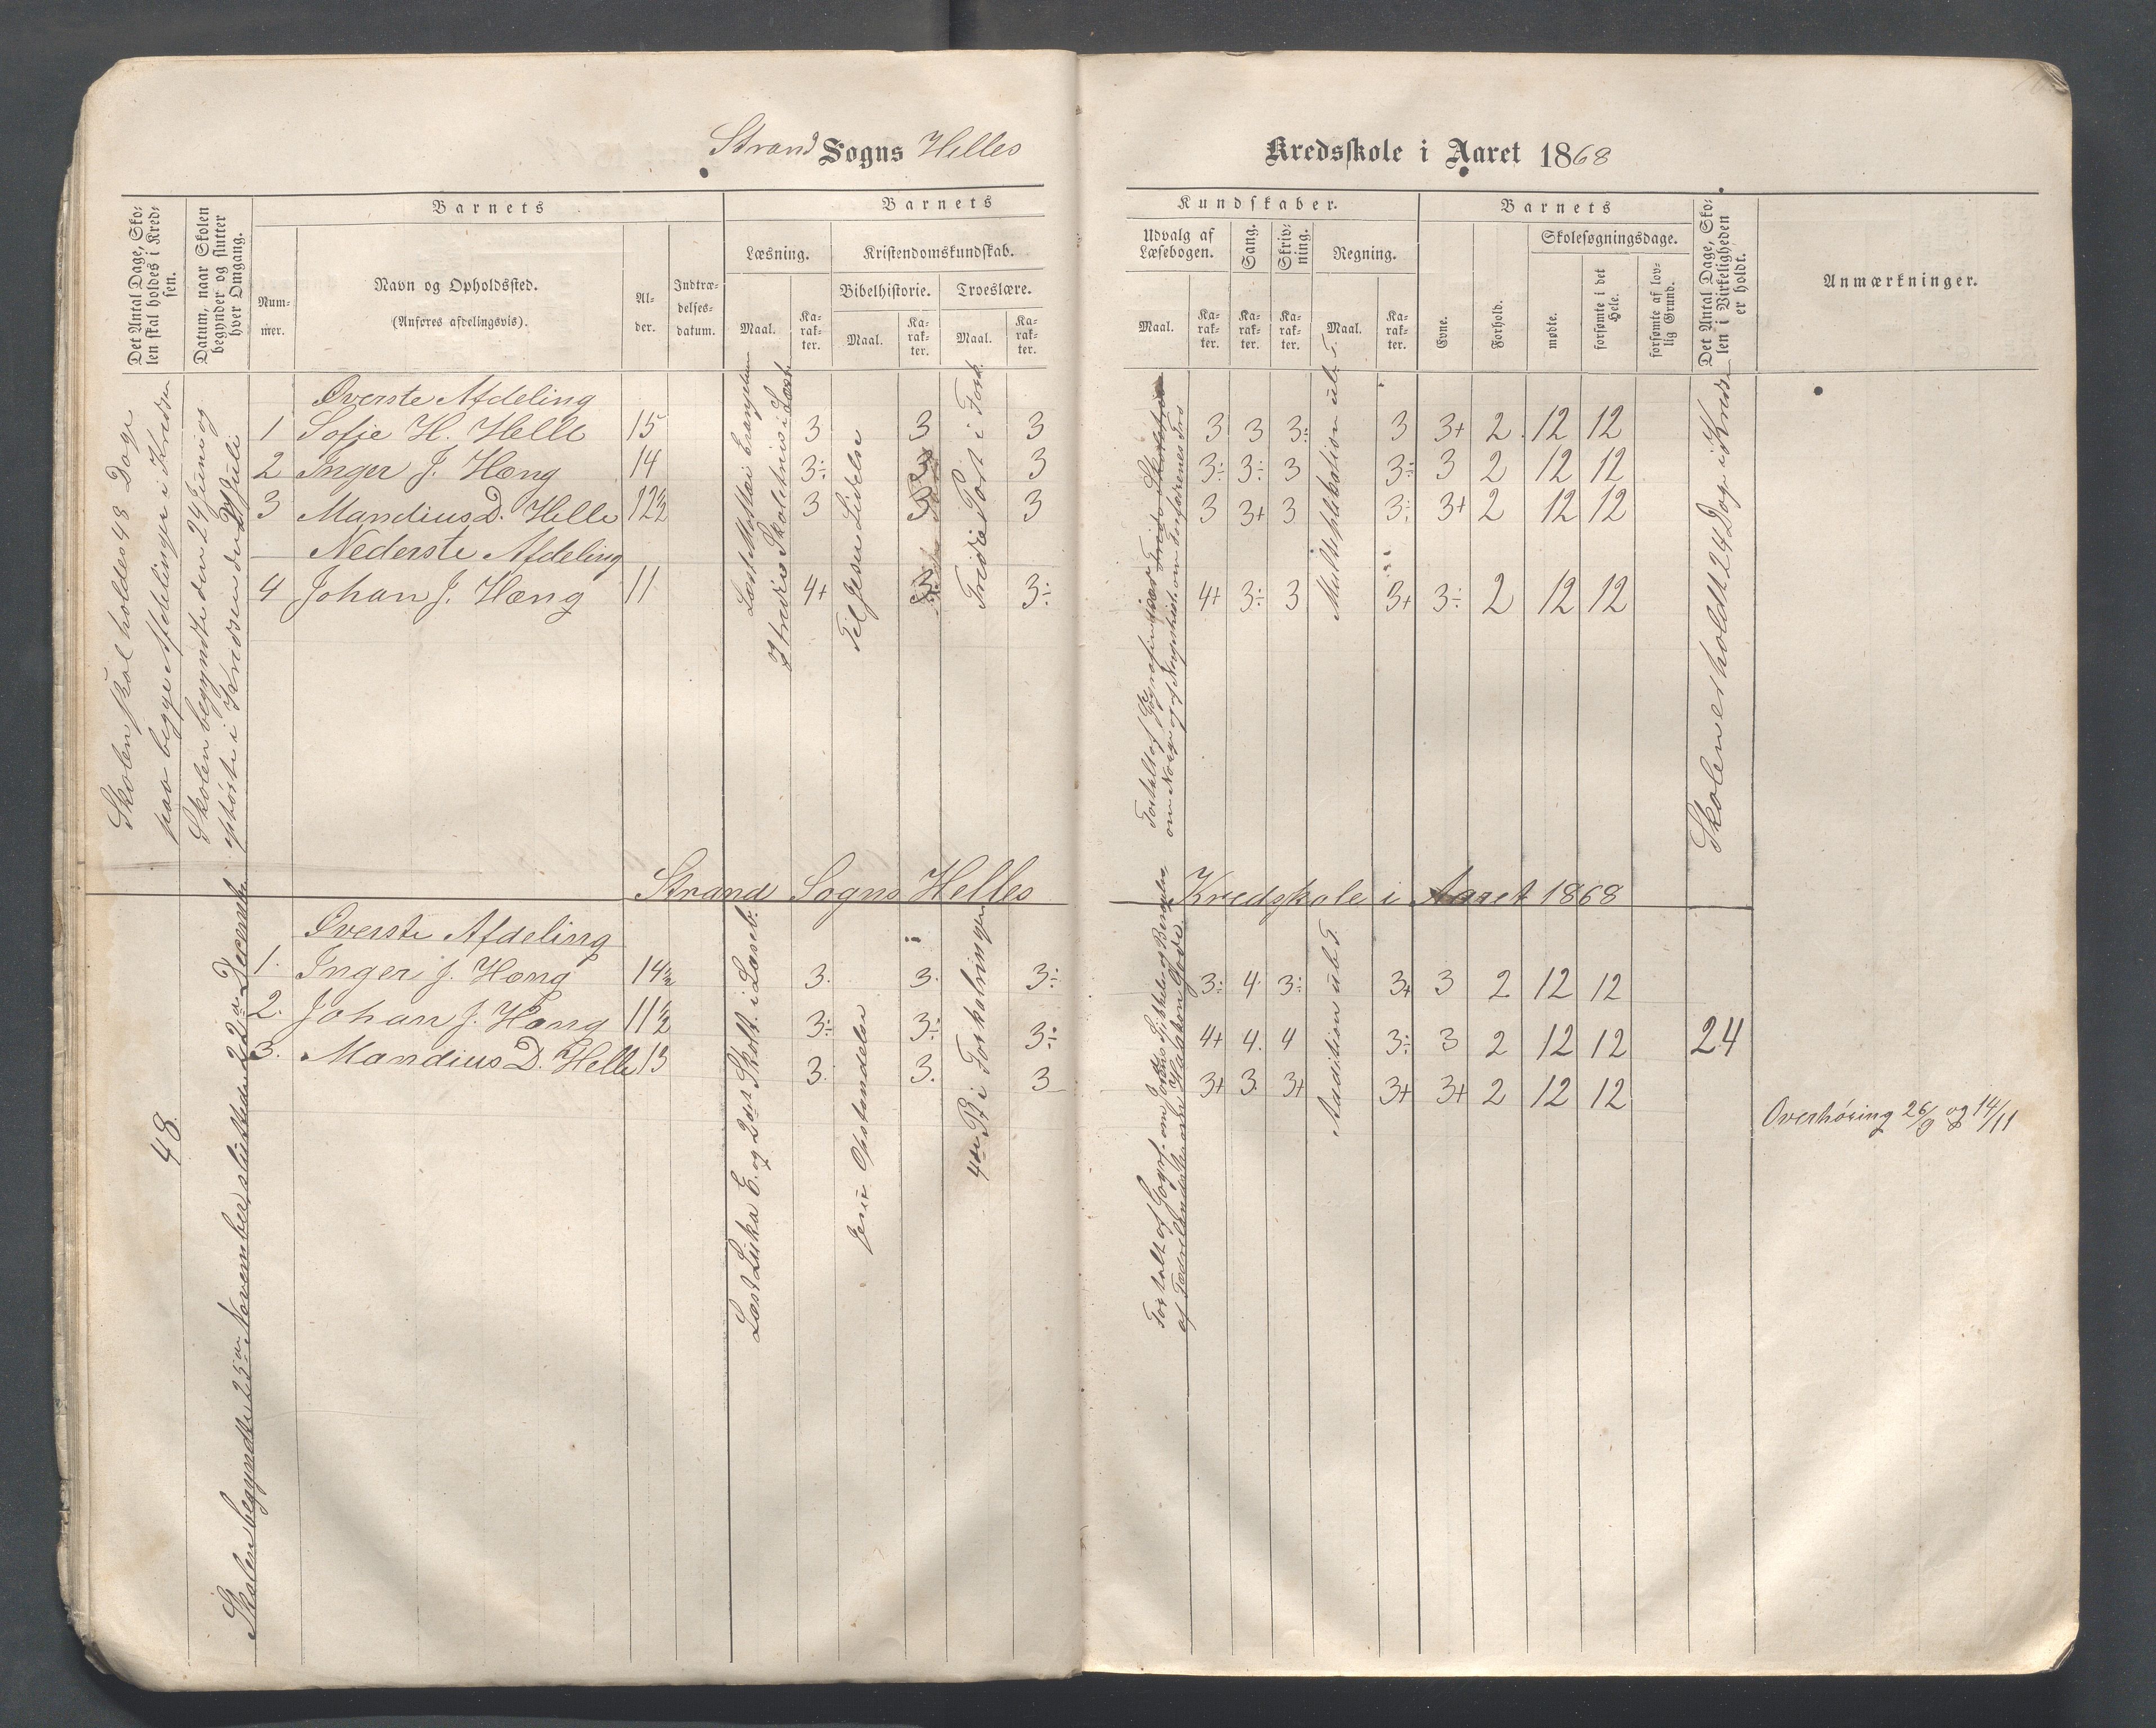 Strand Sogns Helles Kredsskole i Aaret 1868
Det Antal Dage, Skolen skal holdes i Kredsen.
Datum, naar Skolen begynder og slutter hver Omgang.
Barnets
Barnets
Kundskaber.
Barnets
Det Antal Dage, Skolen i Virkeligheden er holdt.
Anmærkninger.
Nummer.
Navn og Opholdssted.
(Anføres afdelingsvis).
Alder.
Indtrædelsesdatum.
Læsning.
Kristendomskundskab.
Bibelhistorie.
Troeslære.
Maal.
Karakter.
Maal.
Karakter.
Maal.
Karakter.
Udvalg af Læsebogen.
Sang.
Skrivning.
Regning.
Maal.
Karakter.
Karakter.
Karakter.
Maal.
Karakter.
Evne.
Forhold.
Skolesøgningsdage.
mødte.
forsømte i det Hele.
forsømte af lovlig Grund.
Skolen skal holdes 48 Dage
paa begge Afdelinger i Kredsen
Skolen begyndte den 24 Juni og
ophørte i Kredsen den Juli
Øverste Afdeling
1 Sofie H. Helle 15 3 3 3 3 3 3÷ 3 3+ 2 12 12
2 Inger J. Hæng 14 3÷ 3 3÷ 3÷ 3 3÷ 3 2 12 12
3 Mandius D. Helle 12½ 3 3 3 3+ 3 3÷ 3+ 2 12 12
Nederste Afdeling
4 Johan J. Hæng 11 4+ 3÷ 4+ 3÷ 3 3+ 3÷ 2 12 12
Læst Mattæi Evangelium
Til Jesu Lidelse
Tredie Part i Fork.
Multiplikation ub. T.
Skolen er holdt 24 Dage i Kredsen
Strand Sogns Helles Kredsskole i Aaret 1868
48.
Skolen begyndte 25de November, sluttede 22de Decemb.
Øverste Afdeling
1. Inger J. Hæng 14½ 3. 3. 3÷ 3÷ 4. 3÷ 3+ 3 2 12 12
2. Johan J. Hæng 11½ 3÷ 3÷ 3÷ 4+ 4. 4 3÷ 3 2 12 12 24
3. Mandius D. Helle 13 3. 3. 3 3+ 3. 3+ 3+ 3+ 2 12 12
Læst Luka E. og 2det Skolt. i Læseb.
Jesu Opstandelse
4de Pt i Forkolringen
Addition ub. T.
Overhøring 26/9 og 14/11